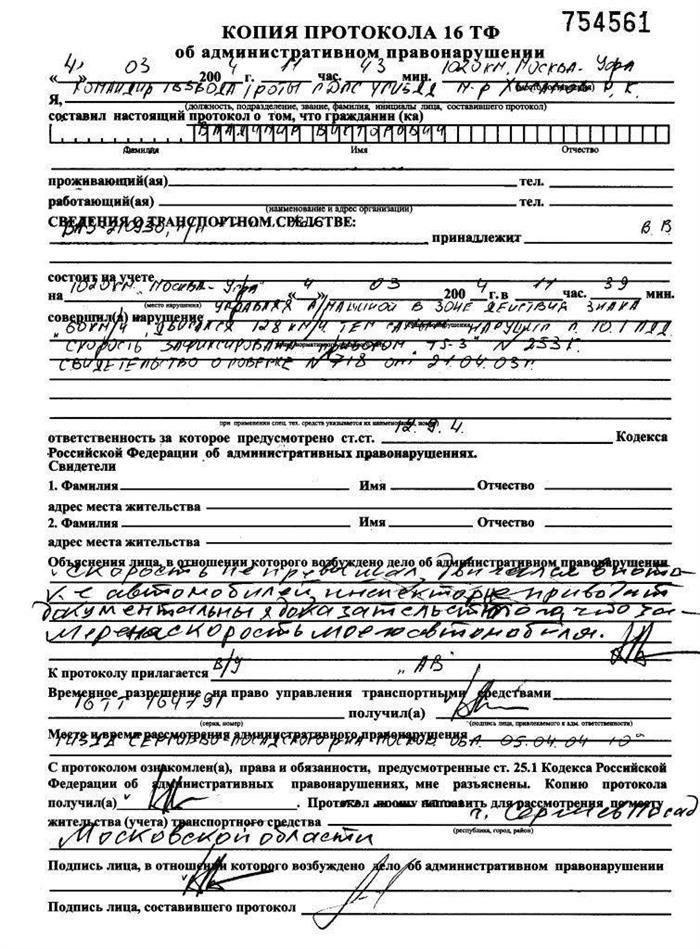 754561
КОПИЯ ПРОТОКОЛА 16 ТФ
об административном правонарушении
«4» 03 2004 г. 11 час. 43 мин. 1020 км. Москва - Уфа
Я, КОМАНДИР ВЗВОДА РОТЫ М-Р
(должность, подразделение, звание, фамилия, инициалы лица, составившего протокол)
составил настоящий протокол о том, что гражданин (ка)
ВЛАДИМИР ВИКТОРОВИЧ
Фамилия Имя Отчество
проживающий(ая) тел.
работающий(ая) тел.
(наименование и адрес организации)
СВЕДЕНИЯ О ТРАНСПОРТНОМ СРЕДСТВЕ:
ВАЗ-210930, принадлежит В.В.
состоит на учете
на 1020 км. "Москва - Уфа" «4» 03 2004 г. в 11 час. 39 мин.
(место нарушения)
совершил(а) нарушение УПРАВЛЯЯ А/МАШИНОЙ В ЗОНЕ ДЕЙСТВИЯ ЗНАКА
"60 КМ/Ч" ДВИГАЛСЯ 128 КМ/Ч ТЕМ САМЫМ НАРУШИЛ П. 10.1 ПДД.
СКОРОСТЬ ЗАФИКСИРОВАНА ПРИБОРОМ "TS-3" N 2531.
СВИДЕТЕЛЬСТВО О ПОВЕРКЕ N 718 от 21.04.03г.
при применении спец. тех. средств указывается их наименование, номер)
ответственность за которое предусмотрено ст.ст. 12.9.4. Кодекса
Российской Федерации об административных правонарушениях.
Свидетели
1. Фамилия Имя Отчество
адрес места жительства
2. Фамилия Имя Отчество
адрес места жительства
Объяснения лица, в отношении которого возбуждено дело об административном правонарушении
Скорость не превышал, двигался в пото
ке автомобилей, инспектор не приводит
документальных доказательств того, что за-
мерена скорость моего автомобиля.
К протоколу прилагается В/У "АВ"
Временное разрешение на право управления транспортными средствами
16 ТТ 164791 получил(а)
(серия, номер) (подпись лица, привлекаемого к адм. ответственности)
Место и время рассмотрения административного правонарушения
СЕРГИЕВО ПОСАДСКОГО Р-НА МОСКОВ. ОБЛ. 05.04.04 10
С протоколом ознакомлен(а), права и обязанности, предусмотренные ст. 25.1 Кодекса Российской
Федерации об административных правонарушениях, мне разъяснены. Копию протокола
получил(а) . Протокол прошу направить для рассмотрения по месту
жительства (учета) транспортного средства г. Сергиев Посад
(республика, город, район)
Московской области
Подпись лица, в отношении которого возбуждено дело об административном правонарушении
Подпись лица, составившего протокол